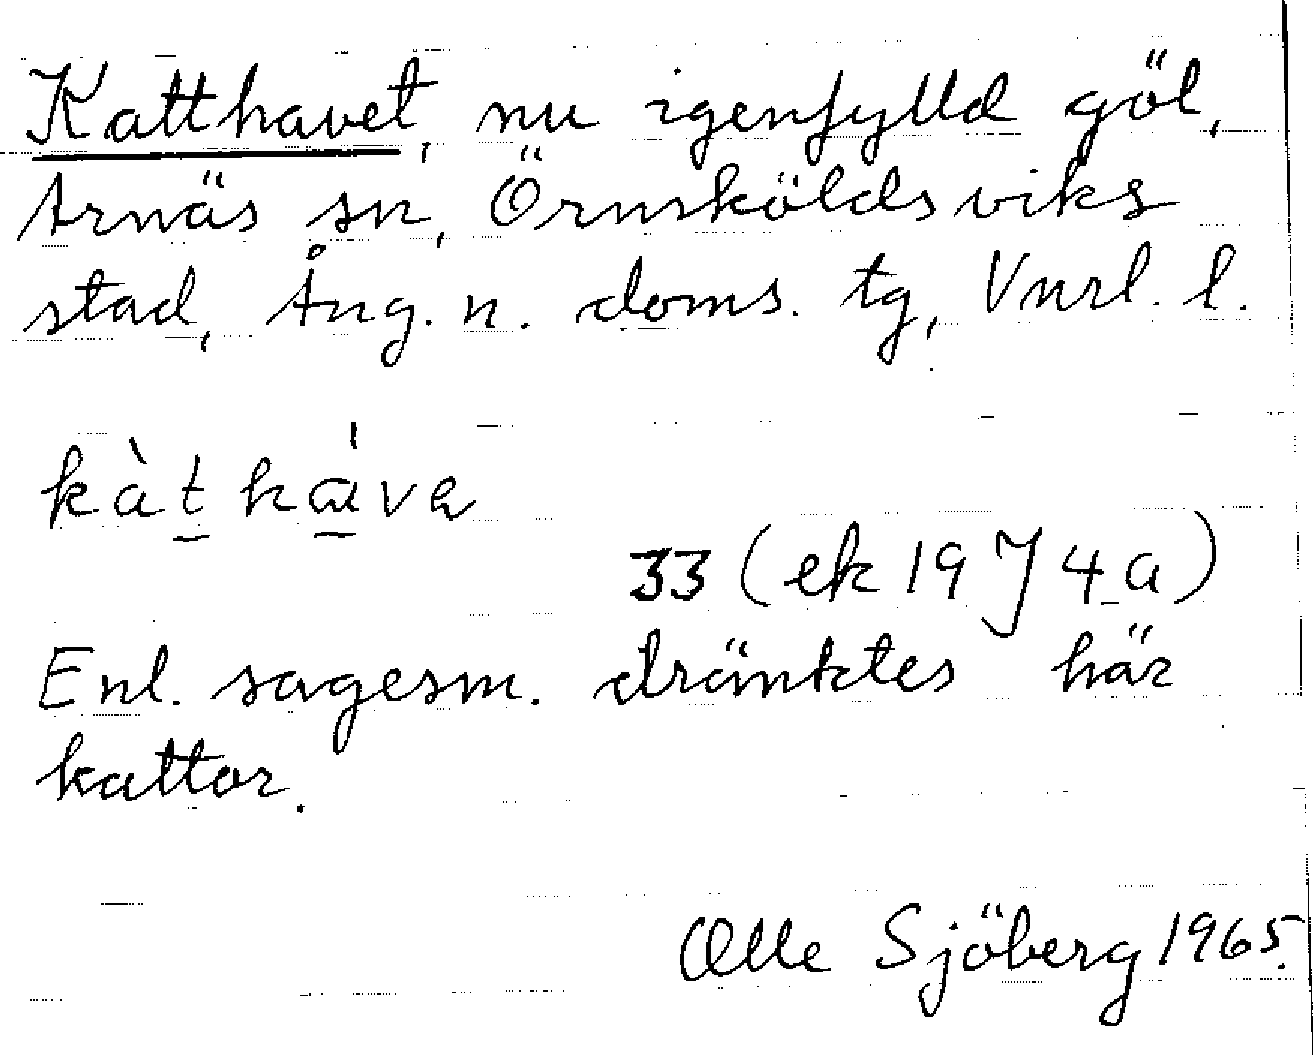 Katthavet, nu igenfylld göl,
Arnäs sn, Örnsköldsviks
stad, Ång. n. doms. tg, Vnrl. l.
kàt hàva
33 (ek 19 J 4 a)
Enl. sagesm. dränktes här
kattor.
Olle Sjöberg 1965.